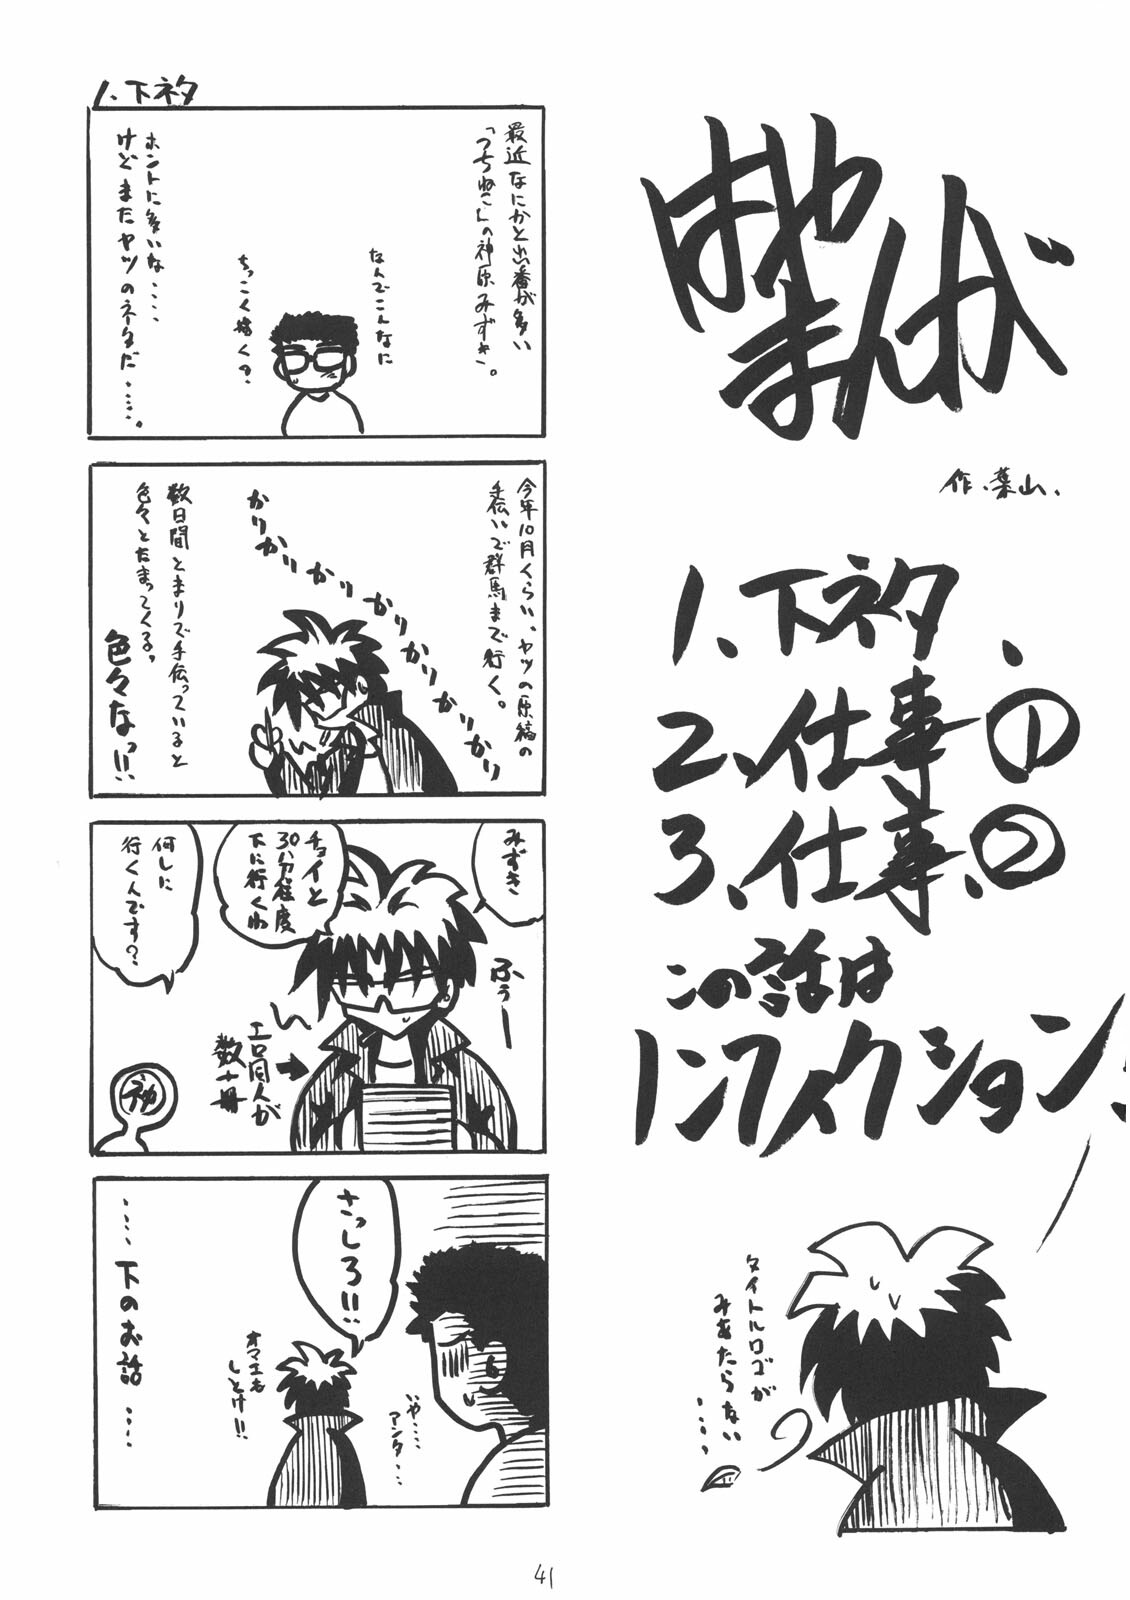 はや
まんが
作、葉山、
1、下ネタ、
2、仕事①
3、仕事、②
この話は
ノンフィクション!
タイトルロゴが
みあたらない
‥‥、
1、下ネタ
最近なにかと出番が多い
「つちねこさんの神原みずき」。
なんでこんなに
ちっこく描くの?
ホントに多いな‥‥
けどまたヤツのネタだ‥‥‥。
今年10月くらい、ヤツの原稿の
手伝いで群馬まで行く。
かりかりかりかりかりかりかりかりかり
数日間とまりで手伝っていると
色々とたまってくる。
色々なっ!!
みずき
チョイと
30分程度
下に行くわ
ふぅー
エロ同人が
数十冊
何しに
行くんです?
さっしろ!!
いや‥‥
アンタ‥‥
オマエも
しとけ!!
‥‥下のお話‥‥
41